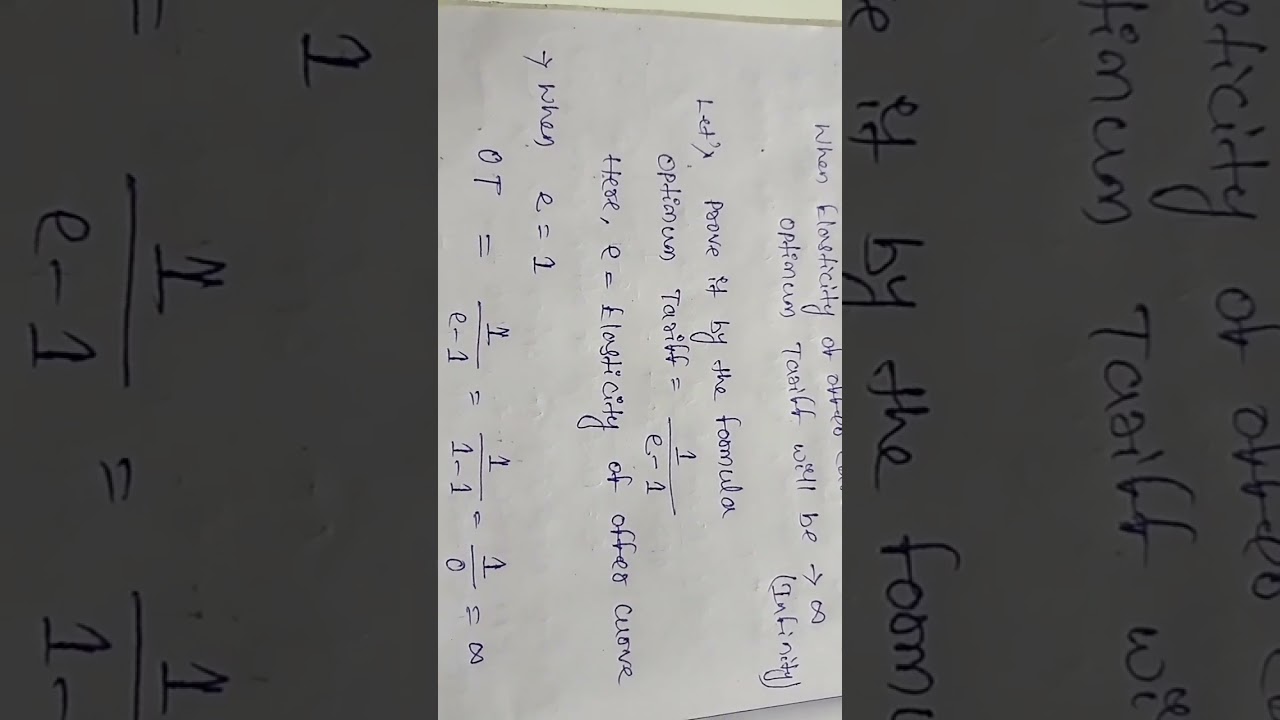 When Elasticity of offer
optimum Tariff will be → ∞
(Infinity)
Let's prove it by the formula
optimum Tariff = 1/(e-1)
Here, e = Elasticity of offer curve
→ when e = 1
OT = 1/(e-1) = 1/(1-1) = 1/0 = ∞